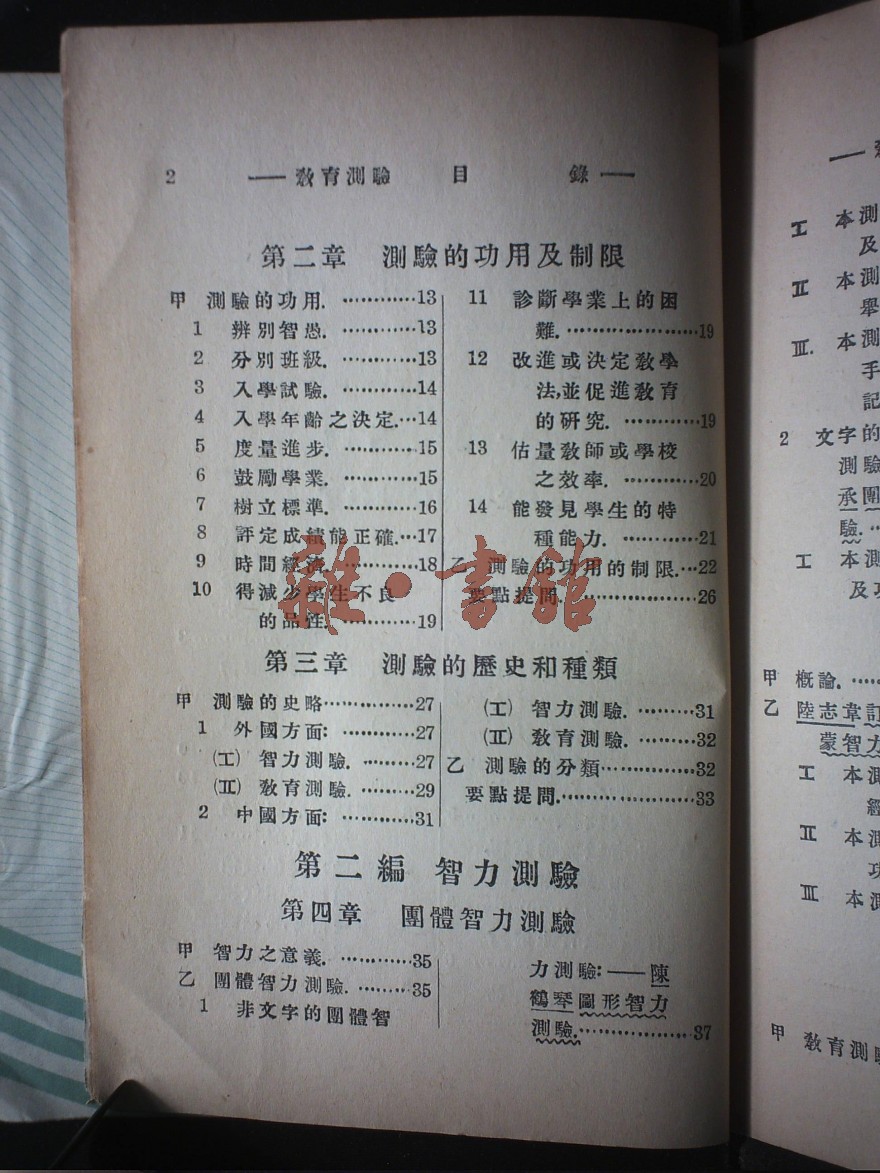 2 ——教育測驗 目 錄——
第二章 測驗的功用及制限
甲 測驗的功用. …………13
1 辨別智愚. …………13
2 分別班級. …………13
3 入學試驗. …………14
4 入學年齡之決定.…14
5 度量進步. …………15
6 鼓勵學業. …………15
7 樹立標準. …………16
8 評定成績能正確.…17
9 時間經濟. …………18
10 得減少學生不良
的品性. …………19
11 診斷學業上的困
難. …………………19
12 改進或決定教學
法,並促進教育
的研究. …………19
13 估量教師或學校
之效率. …………20
14 能發見學生的特
種能力. …………21
乙 測驗的功用的制限.…22
要點提問. …………………26
第三章 測驗的歷史和種類
甲 測驗的史略……………27
1 外國方面: …………27
(I) 智力測驗. ………27
(II) 教育測驗. ………29
2 中國方面: …………31
(I) 智力測驗. ………31
(II) 教育測驗. ………32
乙 測驗的分類……………32
要點提問.…………………33
第二編 智力測驗
第四章 團體智力測驗
甲 智力之意義. …………35
乙 團體智力測驗. ………35
1 非文字的團體智
力測驗:——陳
鶴琴圖形智力
測驗.…………………37
雜·書館
I 本測
及
II 本測
舉
III. 本測
手
記
2 文字的
測驗
承團
驗.…
I 本測
及功
甲 概論.……
乙 陸志韋訂
蒙智力
I 本測
經
II 本測
功
III 本測
甲 教育測驗